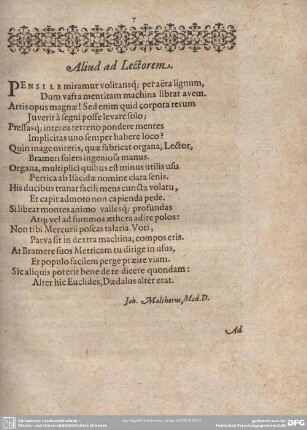 7
Aliud ad Lectorem.
PENSILE miramur volitansq; per aëra lignum,
Dum vafra mentitam machina librat avem.
Artis opus magnæ! Sed enim quid corpora rerum
Juverit à segni posse levare solo;
Pressasq; interea terreno pondere mentes
Implicitas uno semper habere loco?
Quin mage miteris, quæ fabricat organa, Lector,
Brameri solers ingeniosa manus.
Organa, multiplici quibus est minus utilis usu
Pertica ab Isacidæ nomine clara senis.
His ducibus tranat facili mens cuncta volatu,
Et capit admoto non capienda pede.
Si libeat montes animo vallesq; profundas
Atq; vel ad summos æthera adire polos:
Non tibi Mercurii poscas talaria. Voti,
Parva sit in dextra machina, compos eris.
At Bramere suos Metricam tu dirige in usus,
Et populo facilem perge præire viam.
Sic aliquis poterit bene de te dicere quondam:
Alter hic Euclides, Dædalus alter erat.
Joh. Molcherus, Med. D.
Ad